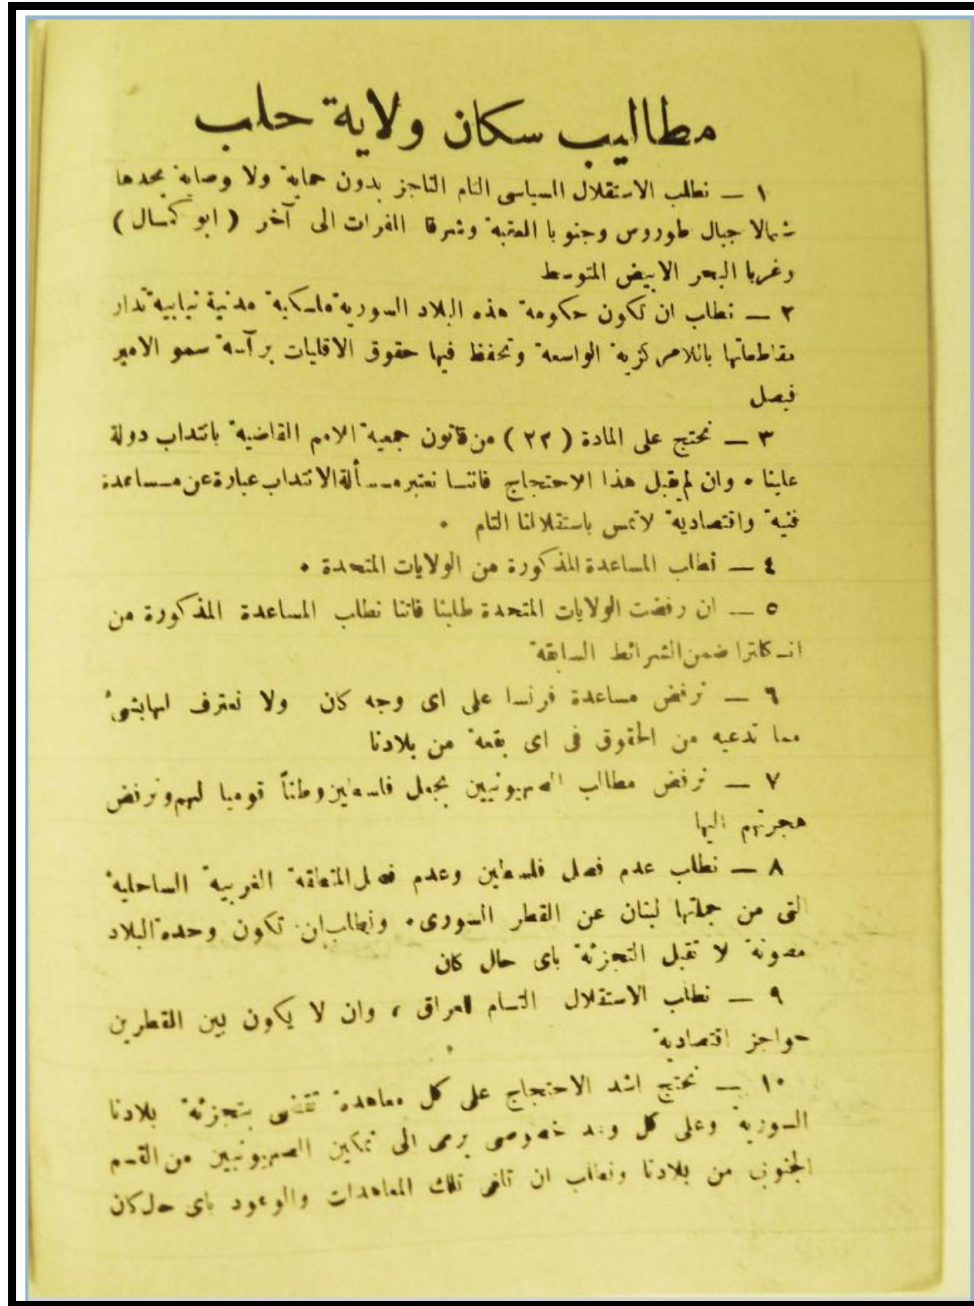 مطاليب سكان ولاية حلب
١ — نطلب الاستقلال السياسى التام الناجز بدون حماية ولا وصاية يحدها
شمالا جبال طوروس وجنوبا العقبة وشرقا الفرات الى آخر ( ابو كمال )
وغربا البحر الابيض المتوسط
٢ — نطلب ان تكون حكومة هذه البلاد السورية ملكية مدنية نيابية تدار
مقاطعاتها باللامركزية الواسعة وتحفظ فيها حقوق الاقليات برآسة سمو الامير
فيصل
٣ — نحتج على المادة ( ٢٢ ) من قانون جمعية الامم القاضية بانتداب دولة
علينا ٠ وان لم يقبل هذا الاحتجاج فاننا نعتبر مسألة الانتداب عبارة عن مساعدة
فنية واقتصادية لاتمس باستقلالنا التام ٠
٤ — نطلب المساعدة المذكورة من الولايات المتحدة ٠
٥ — ان رفضت الولايات المتحدة طلبنا فاننا نطلب المساعدة المذكورة من
انكلترا ضمن الشرائط السابقة
٦ — نرفض مساعدة فرنسا على اى وجه كان ولا نعترف لها بشىء
مما تدعيه من الحقوق فى اى بقعة من بلادنا
٧ — نرفض مطالب الصهيونيين بجعل فلسطين وطناً قوميا لهم ونرفض
هجرتهم اليها
٨ — نطلب عدم فصل فلسطين وعدم فصل المنطقة الغربية الساحلية
التى من جملتها لبنان عن القطر السورى ٠ ونطلب ان تكون وحدة البلاد
مصونة لا تقبل التجزئة باى حال كان
٩ — نطلب الاستقلال التام للعراق ، وان لا يكون بين القطرين
حواجز اقتصادية
١٠ — نحتج اشد الاحتجاج على كل معاهدة تقضى بتجزئة بلادنا
السورية وعلى كل وعد خصوصى يرمى الى تمكين الصهيونيين من القسم
الجنوبى من بلادنا ونطلب ان تلغى تلك المعاهدات والوعود باى حال كان